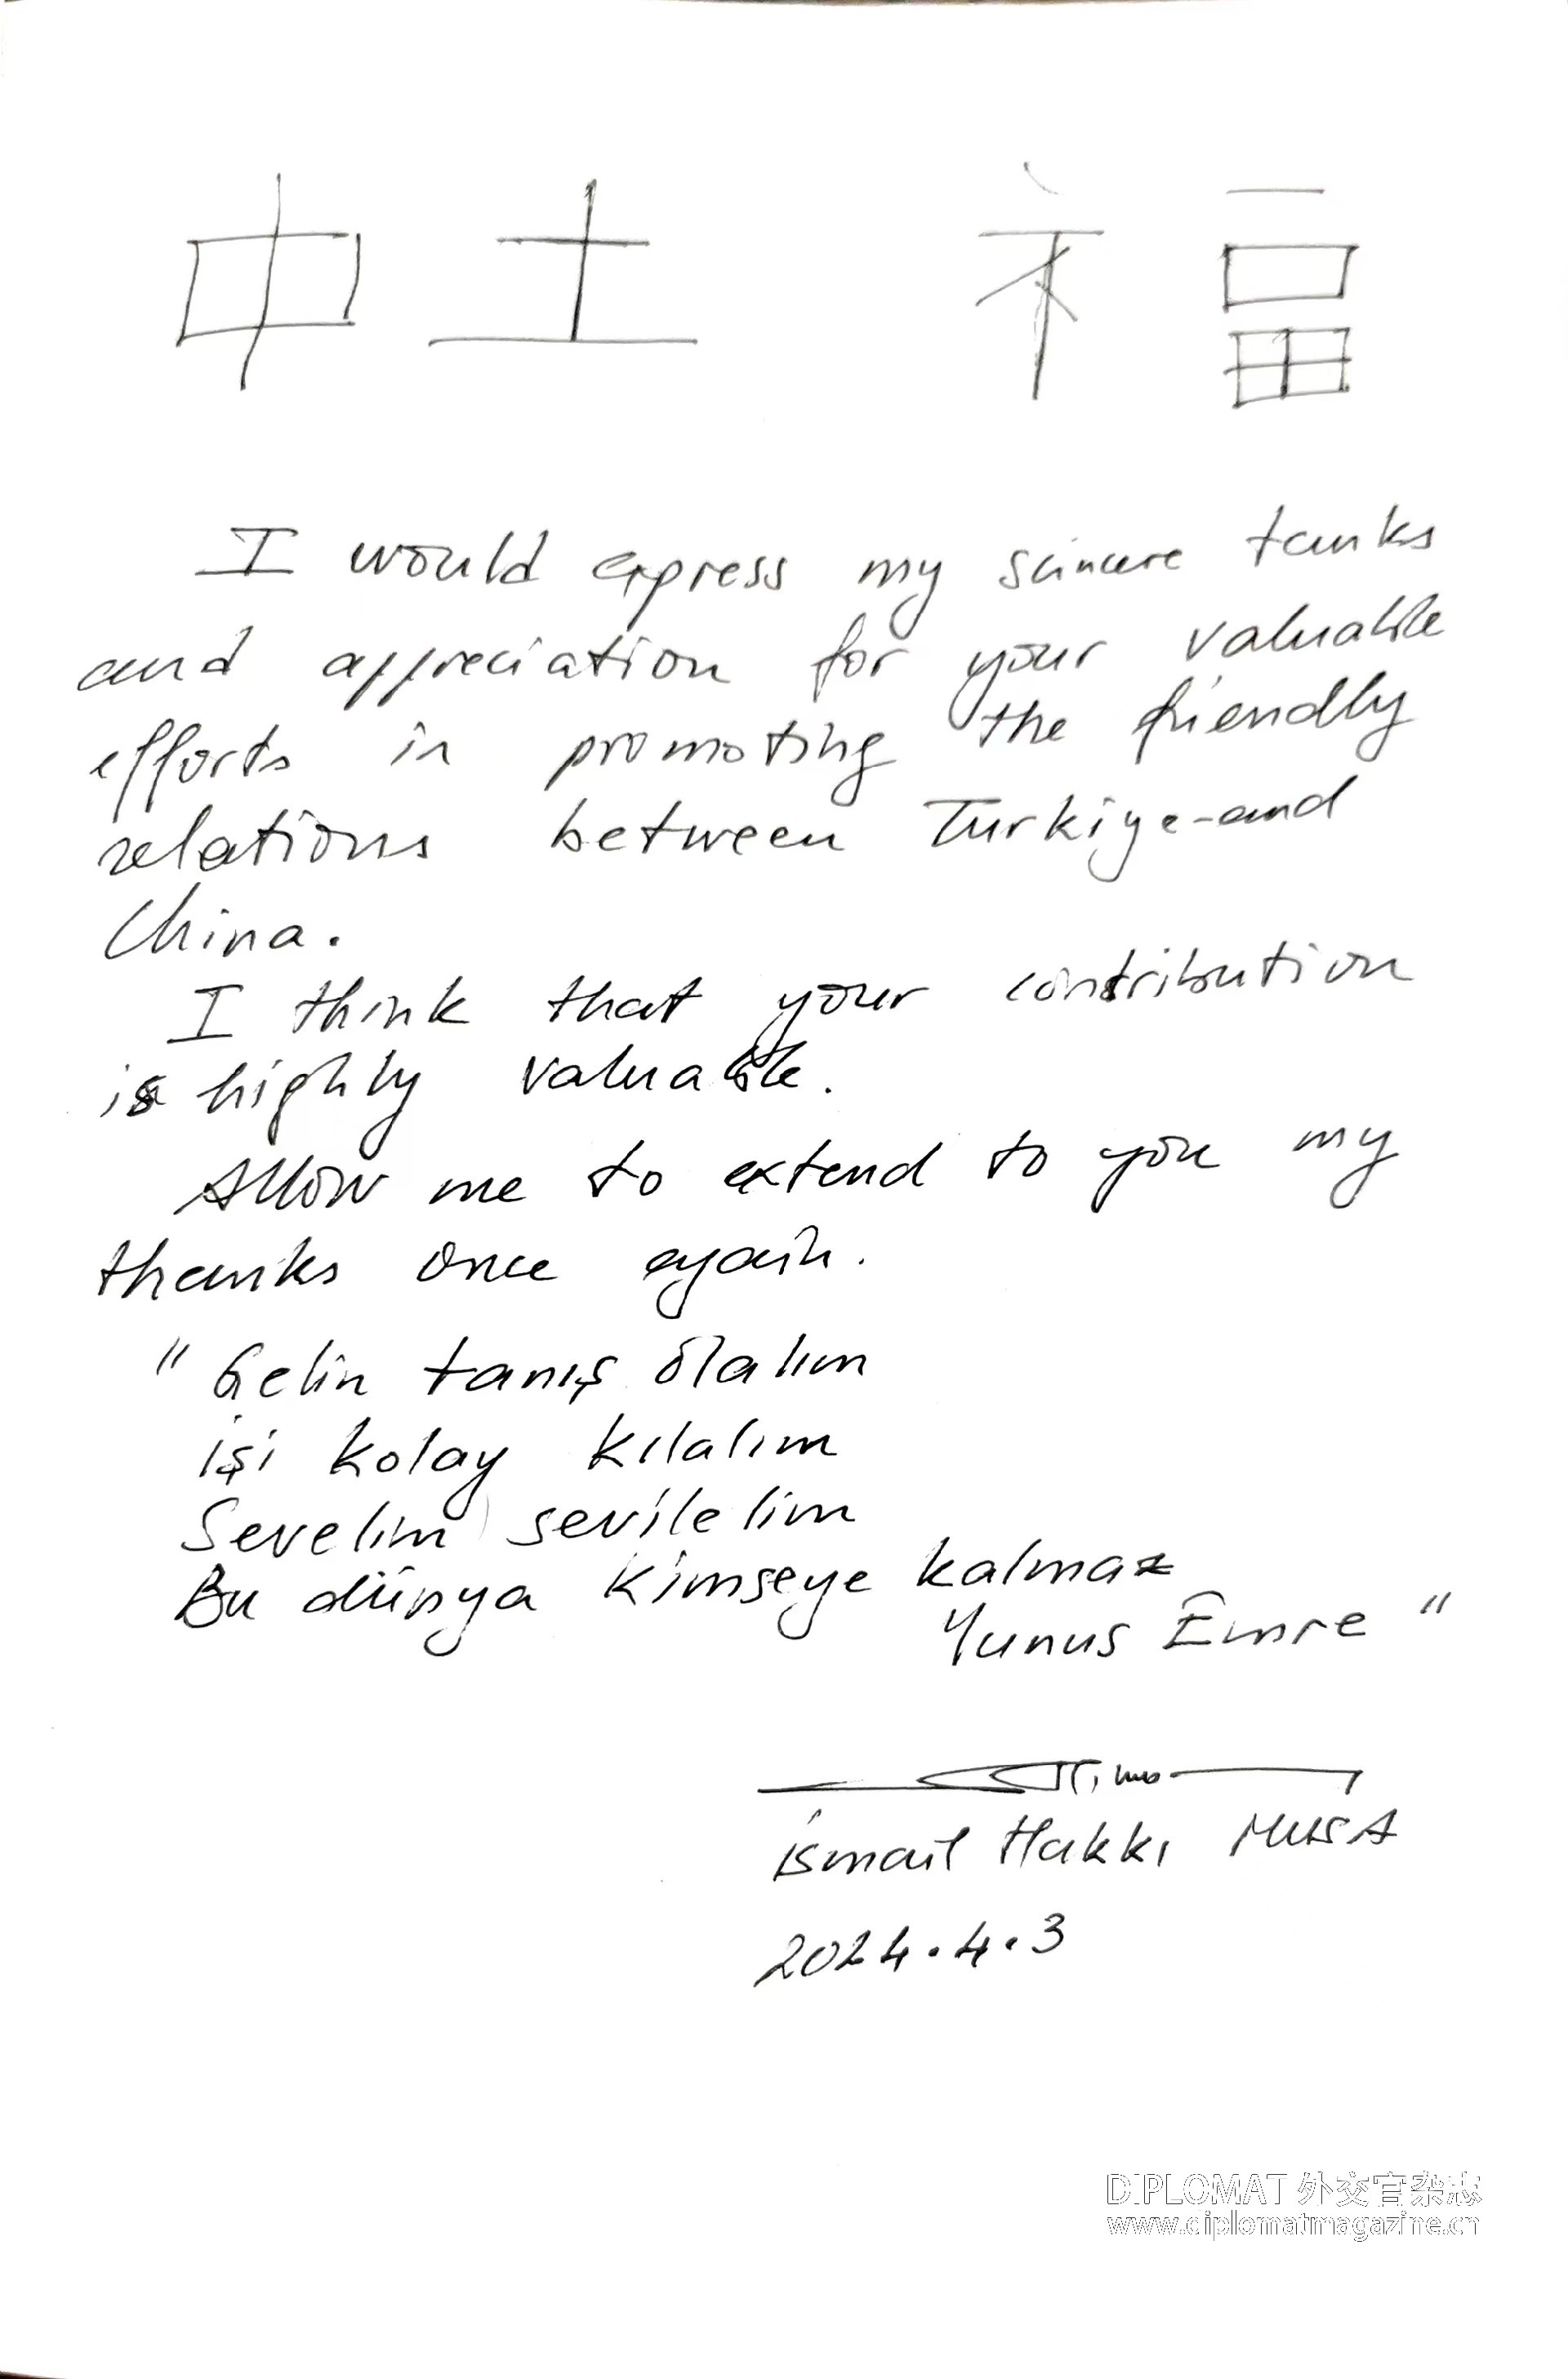 中 土 福
I would express my sincere tanks
and appreciation for your valuable
efforts in promoting the friendly
relations between Turkiye-and
China.
I think that your contribution
is highly valuable.
Allow me to extend to you my
thanks once again.
" Gelin tanış olalım
işi kolay kılalım
Sevelim sevilelim
Bu dünya kimseye kalmaz
Yunus Emre "
İsmail Hakkı MUSA
2024.4.3
DIPLOMAT 外交官杂志
www.diplomatmagazine.cn